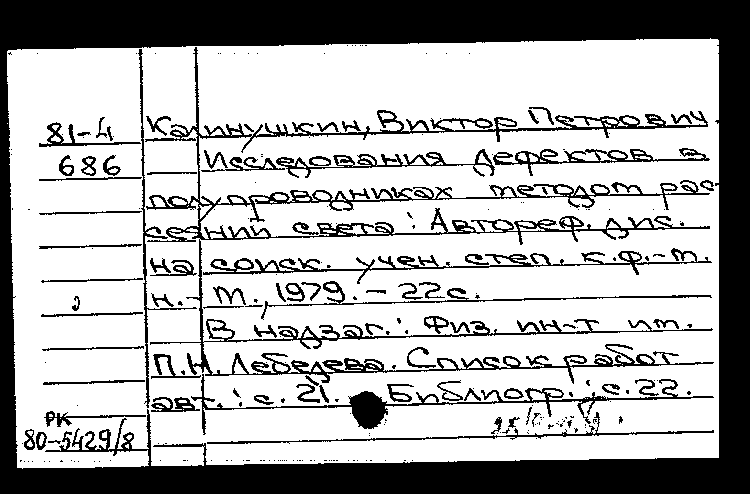 81-4 Калинушкин, Виктор Петрович.
686 Исследования дефектов в
полупроводниках методом рас-
сеяний света : Автореф. дис.
на соиск. учен. степ. к.ф.-м.
н. - М., 1979. - 22 с.
В надзаг.: Физ. ин-т им.
П.Н. Лебедева. Список работ
авт.: с. 21. Библиогр.: с. 22.
РК
80-5429/8